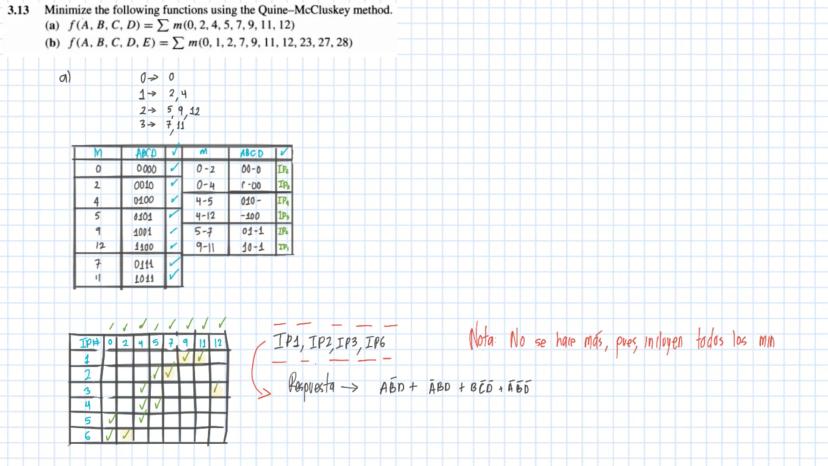 3.13 Minimize the following functions using the Quine–McCluskey method.
(a) f(A, B, C, D) = ∑ m(0, 2, 4, 5, 7, 9, 11, 12)
(b) f(A, B, C, D, E) = ∑ m(0, 1, 2, 7, 9, 11, 12, 23, 27, 28)
a)
0→ 0
1→ 2,4
2→ 5,9,12
3→ 7,11
M ABCD ✓ M ABCD ✓
0 0000 ✓ 0-2 00-0 IP6
2 0010 ✓ 0-4 0-00 IP5
4 0100 ✓ 4-5 010- IP4
5 0101 ✓ 4-12 -100 IP3
9 1001 ✓ 5-7 01-1 IP2
12 1100 ✓ 9-11 10-1 IP1
7 0111 ✓
11 1011 ✓
✓ ✓ ✓ ✓ ✓ ✓ ✓ ✓
IP# 0 2 4 5 7 9 11 12
1 ✓ ✓
2 ✓ ✓
3 ✓ ✓
4 ✓ ✓
5 ✓ ✓
6 ✓ ✓
IP1, IP2, IP3, IP6
Nota: No se hace más, pues, incluyen todos los min
Respuesta → AB̄D + ĀBD + BC̄D̄ + ĀB̄D̄